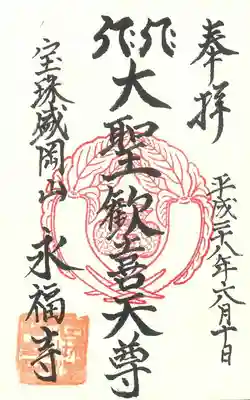 奉拝
平成二十八年六月十日
大聖歓喜天尊
宝珠盛岡山
永福寺